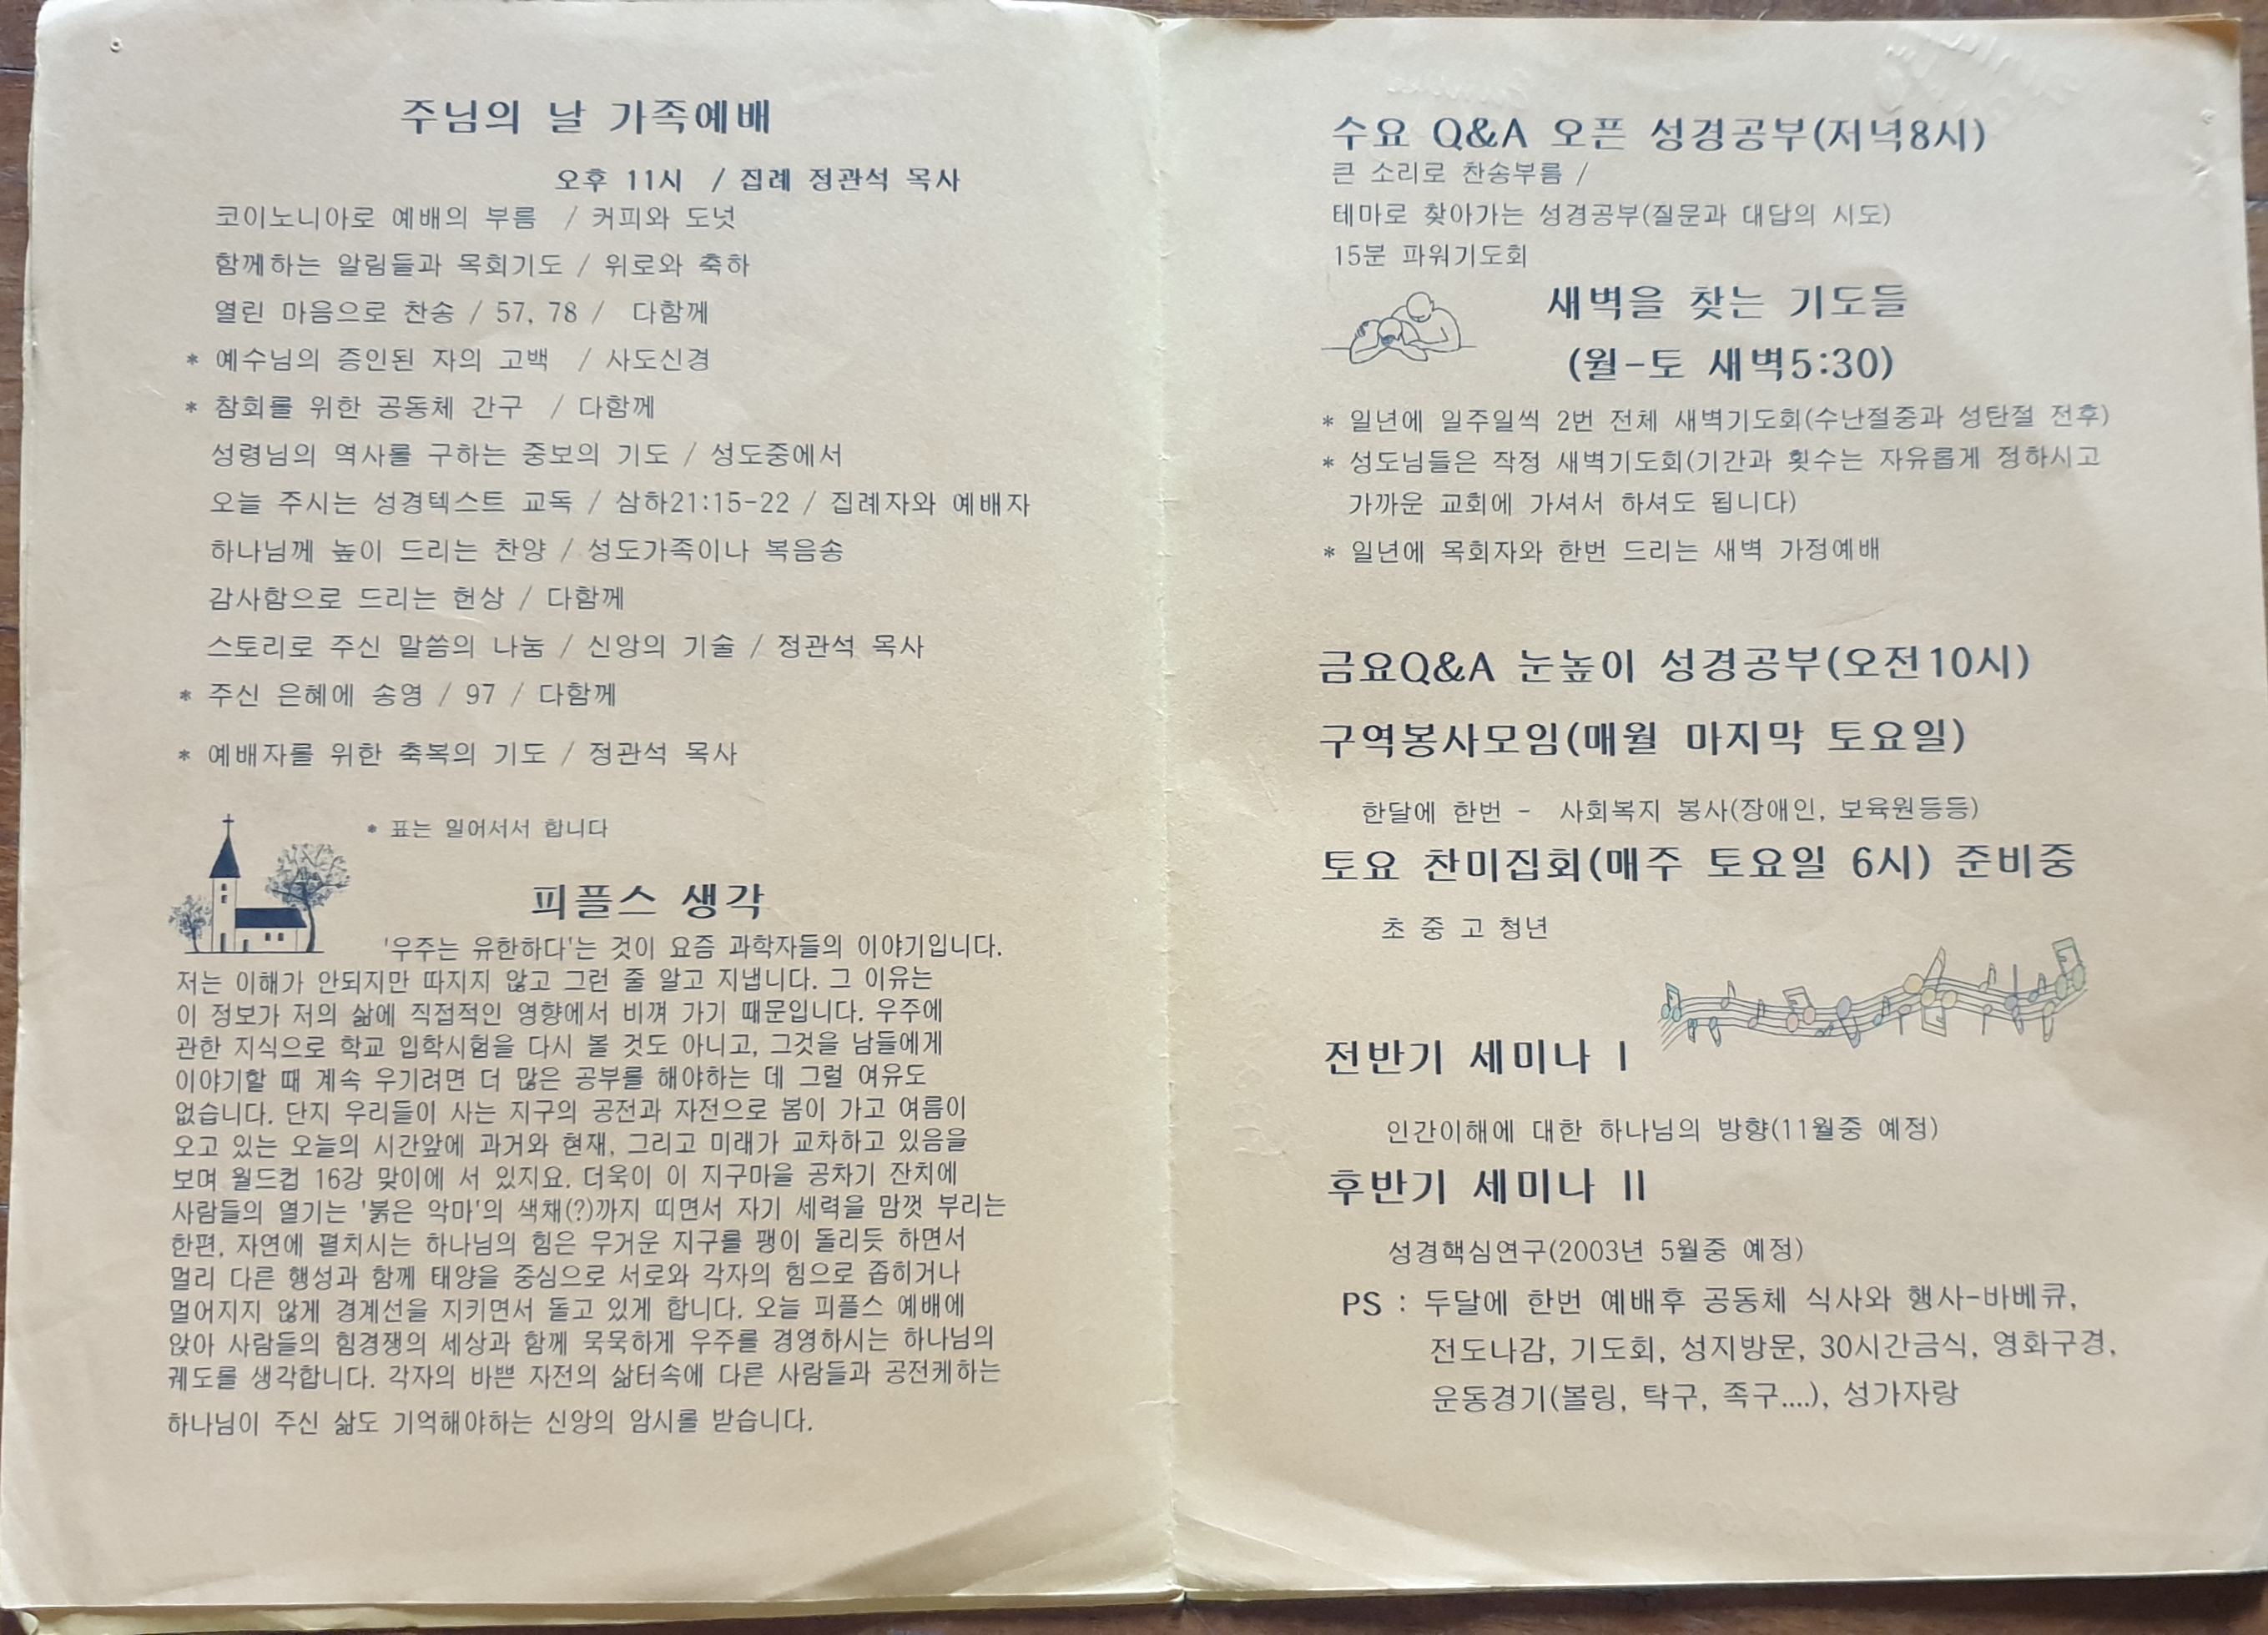 주님의 날 가족예배
오후 11시 / 집례 정관석 목사
코이노니아로 예배의 부름 / 커피와 도넛
함께하는 알림들과 목회기도 / 위로와 축하
열린 마음으로 찬송 / 57, 78 / 다함께
* 예수님의 증인된 자의 고백 / 사도신경
* 참회를 위한 공동체 간구 / 다함께
성령님의 역사를 구하는 중보의 기도 / 성도중에서
오늘 주시는 성경텍스트 교독 / 삼하21:15-22 / 집례자와 예배자
하나님께 높이 드리는 찬양 / 성도가족이나 복음송
감사함으로 드리는 헌상 / 다함께
스토리로 주신 말씀의 나눔 / 신앙의 기술 / 정관석 목사
* 주신 은혜에 송영 / 97 / 다함께
* 예배자를 위한 축복의 기도 / 정관석 목사
* 표는 일어서서 합니다
피플스 생각
'우주는 유한하다'는 것이 요즘 과학자들의 이야기입니다.
저는 이해가 안되지만 따지지 않고 그런 줄 알고 지냅니다. 그 이유는
이 정보가 저의 삶에 직접적인 영향에서 비껴 가기 때문입니다. 우주에
관한 지식으로 학교 입학시험을 다시 볼 것도 아니고, 그것을 남들에게
이야기할 때 계속 우기려면 더 많은 공부를 해야하는 데 그럴 여유도
없습니다. 단지 우리들이 사는 지구의 공전과 자전으로 봄이 가고 여름이
오고 있는 오늘의 시간앞에 과거와 현재, 그리고 미래가 교차하고 있음을
보며 월드컵 16강 맞이에 서 있지요. 더욱이 이 지구마을 공차기 잔치에
사람들의 열기는 '붉은 악마'의 색채(?)까지 띠면서 자기 세력을 맘껏 부리는
한편, 자연에 펼치시는 하나님의 힘은 무거운 지구를 팽이 돌리듯 하면서
멀리 다른 행성과 함께 태양을 중심으로 서로와 각자의 힘으로 좁히거나
멀어지지 않게 경계선을 지키면서 돌고 있게 합니다. 오늘 피플스 예배에
앉아 사람들의 힘경쟁의 세상과 함께 묵묵하게 우주를 경영하시는 하나님의
궤도를 생각합니다. 각자의 바쁜 자전의 삶터속에 다른 사람들과 공전케하는
하나님이 주신 삶도 기억해야하는 신앙의 암시를 받습니다.
수요 Q&A 오픈 성경공부(저녁8시)
큰 소리로 찬송부름 /
테마로 찾아가는 성경공부(질문과 대답의 시도)
15분 파워기도회
새벽을 찾는 기도들
(월-토 새벽5:30)
* 일년에 일주일씩 2번 전체 새벽기도회(수난절중과 성탄절 전후)
* 성도님들은 작정 새벽기도회(기간과 횟수는 자유롭게 정하시고
가까운 교회에 가셔서 하셔도 됩니다)
* 일년에 목회자와 한번 드리는 새벽 가정예배
금요Q&A 눈높이 성경공부(오전10시)
구역봉사모임(매월 마지막 토요일)
한달에 한번 - 사회복지 봉사(장애인, 보육원등등)
토요 찬미집회(매주 토요일 6시) 준비중
초 중 고 청년
전반기 세미나 I
인간이해에 대한 하나님의 방향(11월중 예정)
후반기 세미나 II
성경핵심연구(2003년 5월중 예정)
PS : 두달에 한번 예배후 공동체 식사와 행사-바베큐,
전도나감, 기도회, 성지방문, 30시간금식, 영화구경,
운동경기(볼링, 탁구, 족구....), 성가자랑